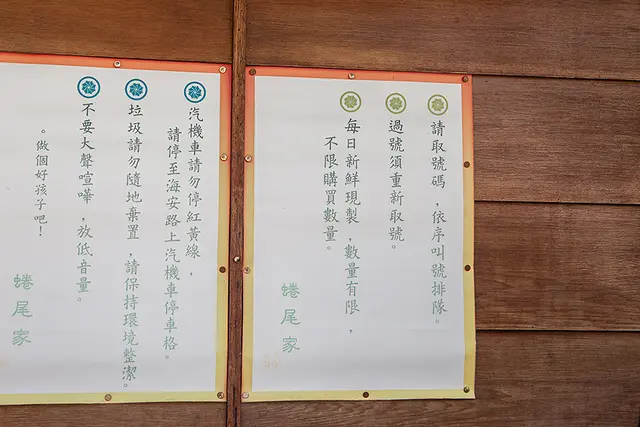 請取號碼，依序叫號排隊。
過號須重新取號。
每日新鮮現製，數量有限，
不限購買數量。
蜷尾家
汽機車請勿停紅黃線，
請停至海安路上汽機車停車格。
垃圾請勿隨地棄置，請保持環境整潔。
不要大聲喧嘩，放低音量。
。做個好孩子吧！
蜷尾家